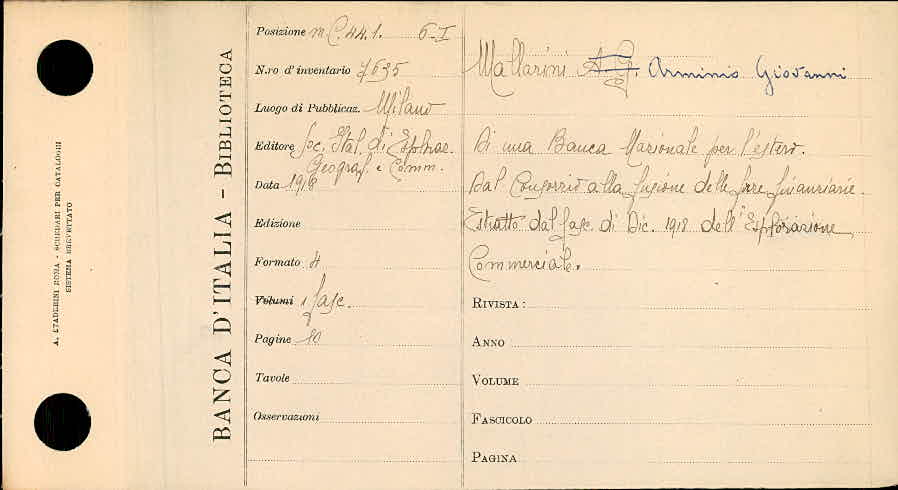 A. STADERINI ROMA - SCHEDARI PER CATALOGHI
SISTEMA BREVETTATO
BANCA D'ITALIA - BIBLIOTECA
Posizione m C.44.1. 6-I
N.ro d'inventario 7695
Luogo di Pubblicaz. Milano
Editore Soc. Ital. di Esploraz.
Geograf. e Comm.
Data 1918
Edizione
Formato 4
Volumi 1 fasc.
Pagine 10
Tavole
Osservazioni
Mallarini A. G. Arminio Giovanni
Di una Banca Nazionale per l'estero.
Dal Consorzio alla fusione delle forze finanziarie.
Estratto dal fasc. di Dic. 1918 dell'"Esplorazione
Commerciale.
RIVISTA:
ANNO
VOLUME
FASCICOLO
PAGINA